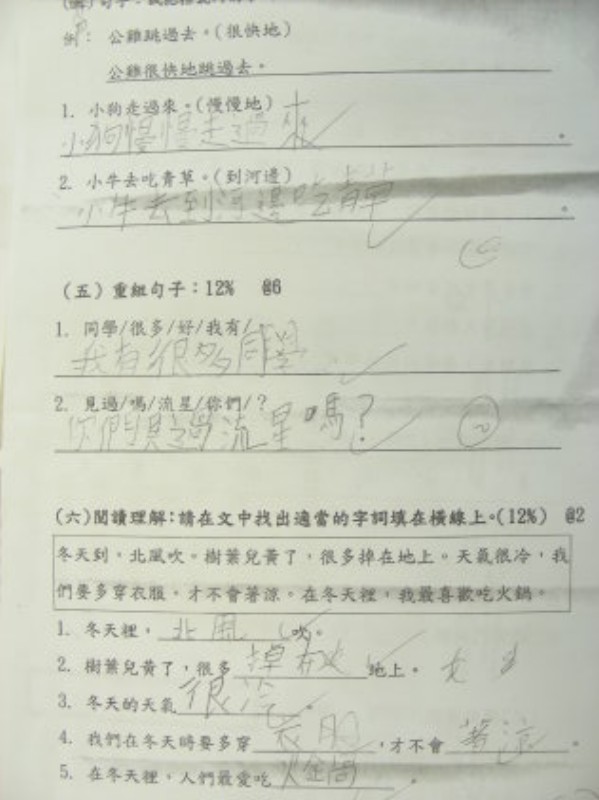 例：公雞跳過去。(很快地)
公雞很快地跳過去。
1. 小狗走過來。(慢慢地)
小狗慢慢走過來
。
2. 小牛去吃青草。(到河邊)
小牛去到河邊吃青草
。
(五) 重組句子：12% @6
1. 同學/很多/好/我有/
我有很多同學
2. 見過/嗎/流星/你們/？
你們見過流星嗎？
(六)閱讀理解：請在文中找出適當的字詞填在橫線上。(12%) @2
冬天到，北風吹。樹葉兒黃了，很多掉在地上。天氣很冷，我
們要多穿衣服，才不會著涼。在冬天裡，我最喜歡吃火鍋。
1. 冬天裡，北風吹。
2. 樹葉兒黃了，很多掉在地上。
3. 冬天的天氣很冷。
4. 我們在冬天時要多穿衣服，才不會著涼。
5. 在冬天裡，人們最愛吃火鍋